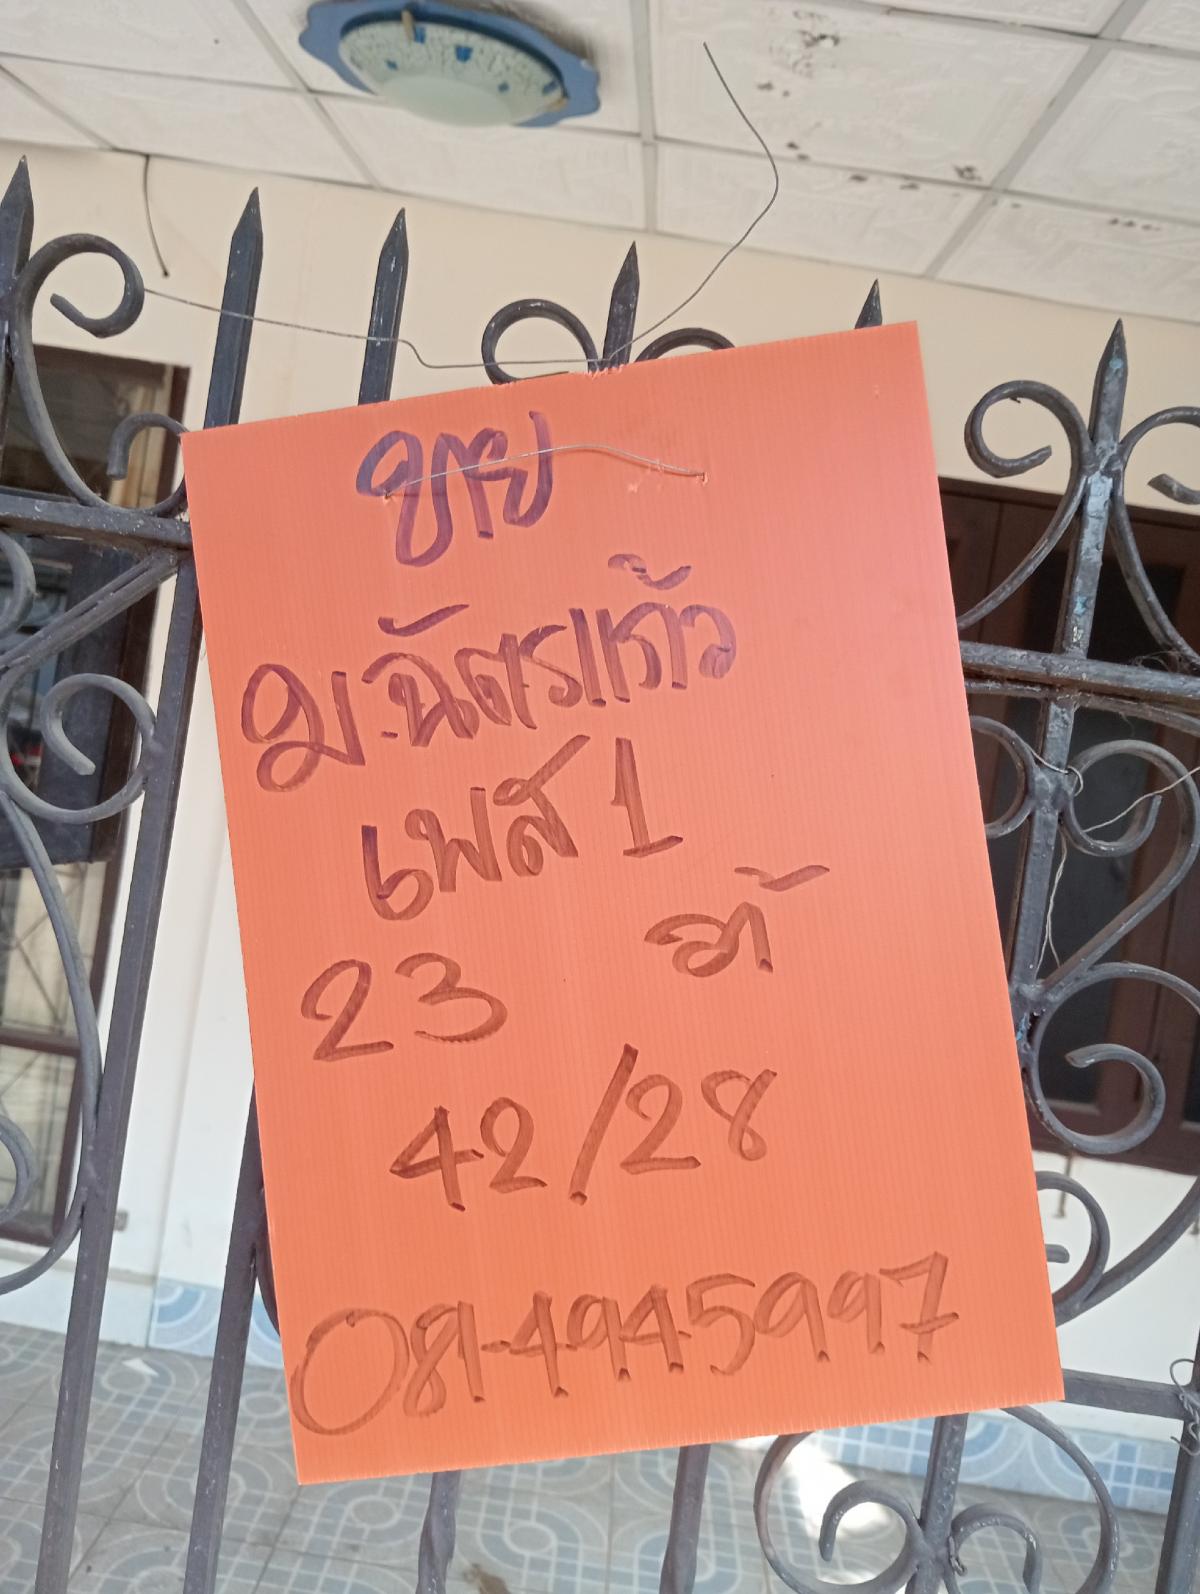 ขาย
ม.ฉัตรแก้ว
เฟส 1
23
42/28
081-4945997